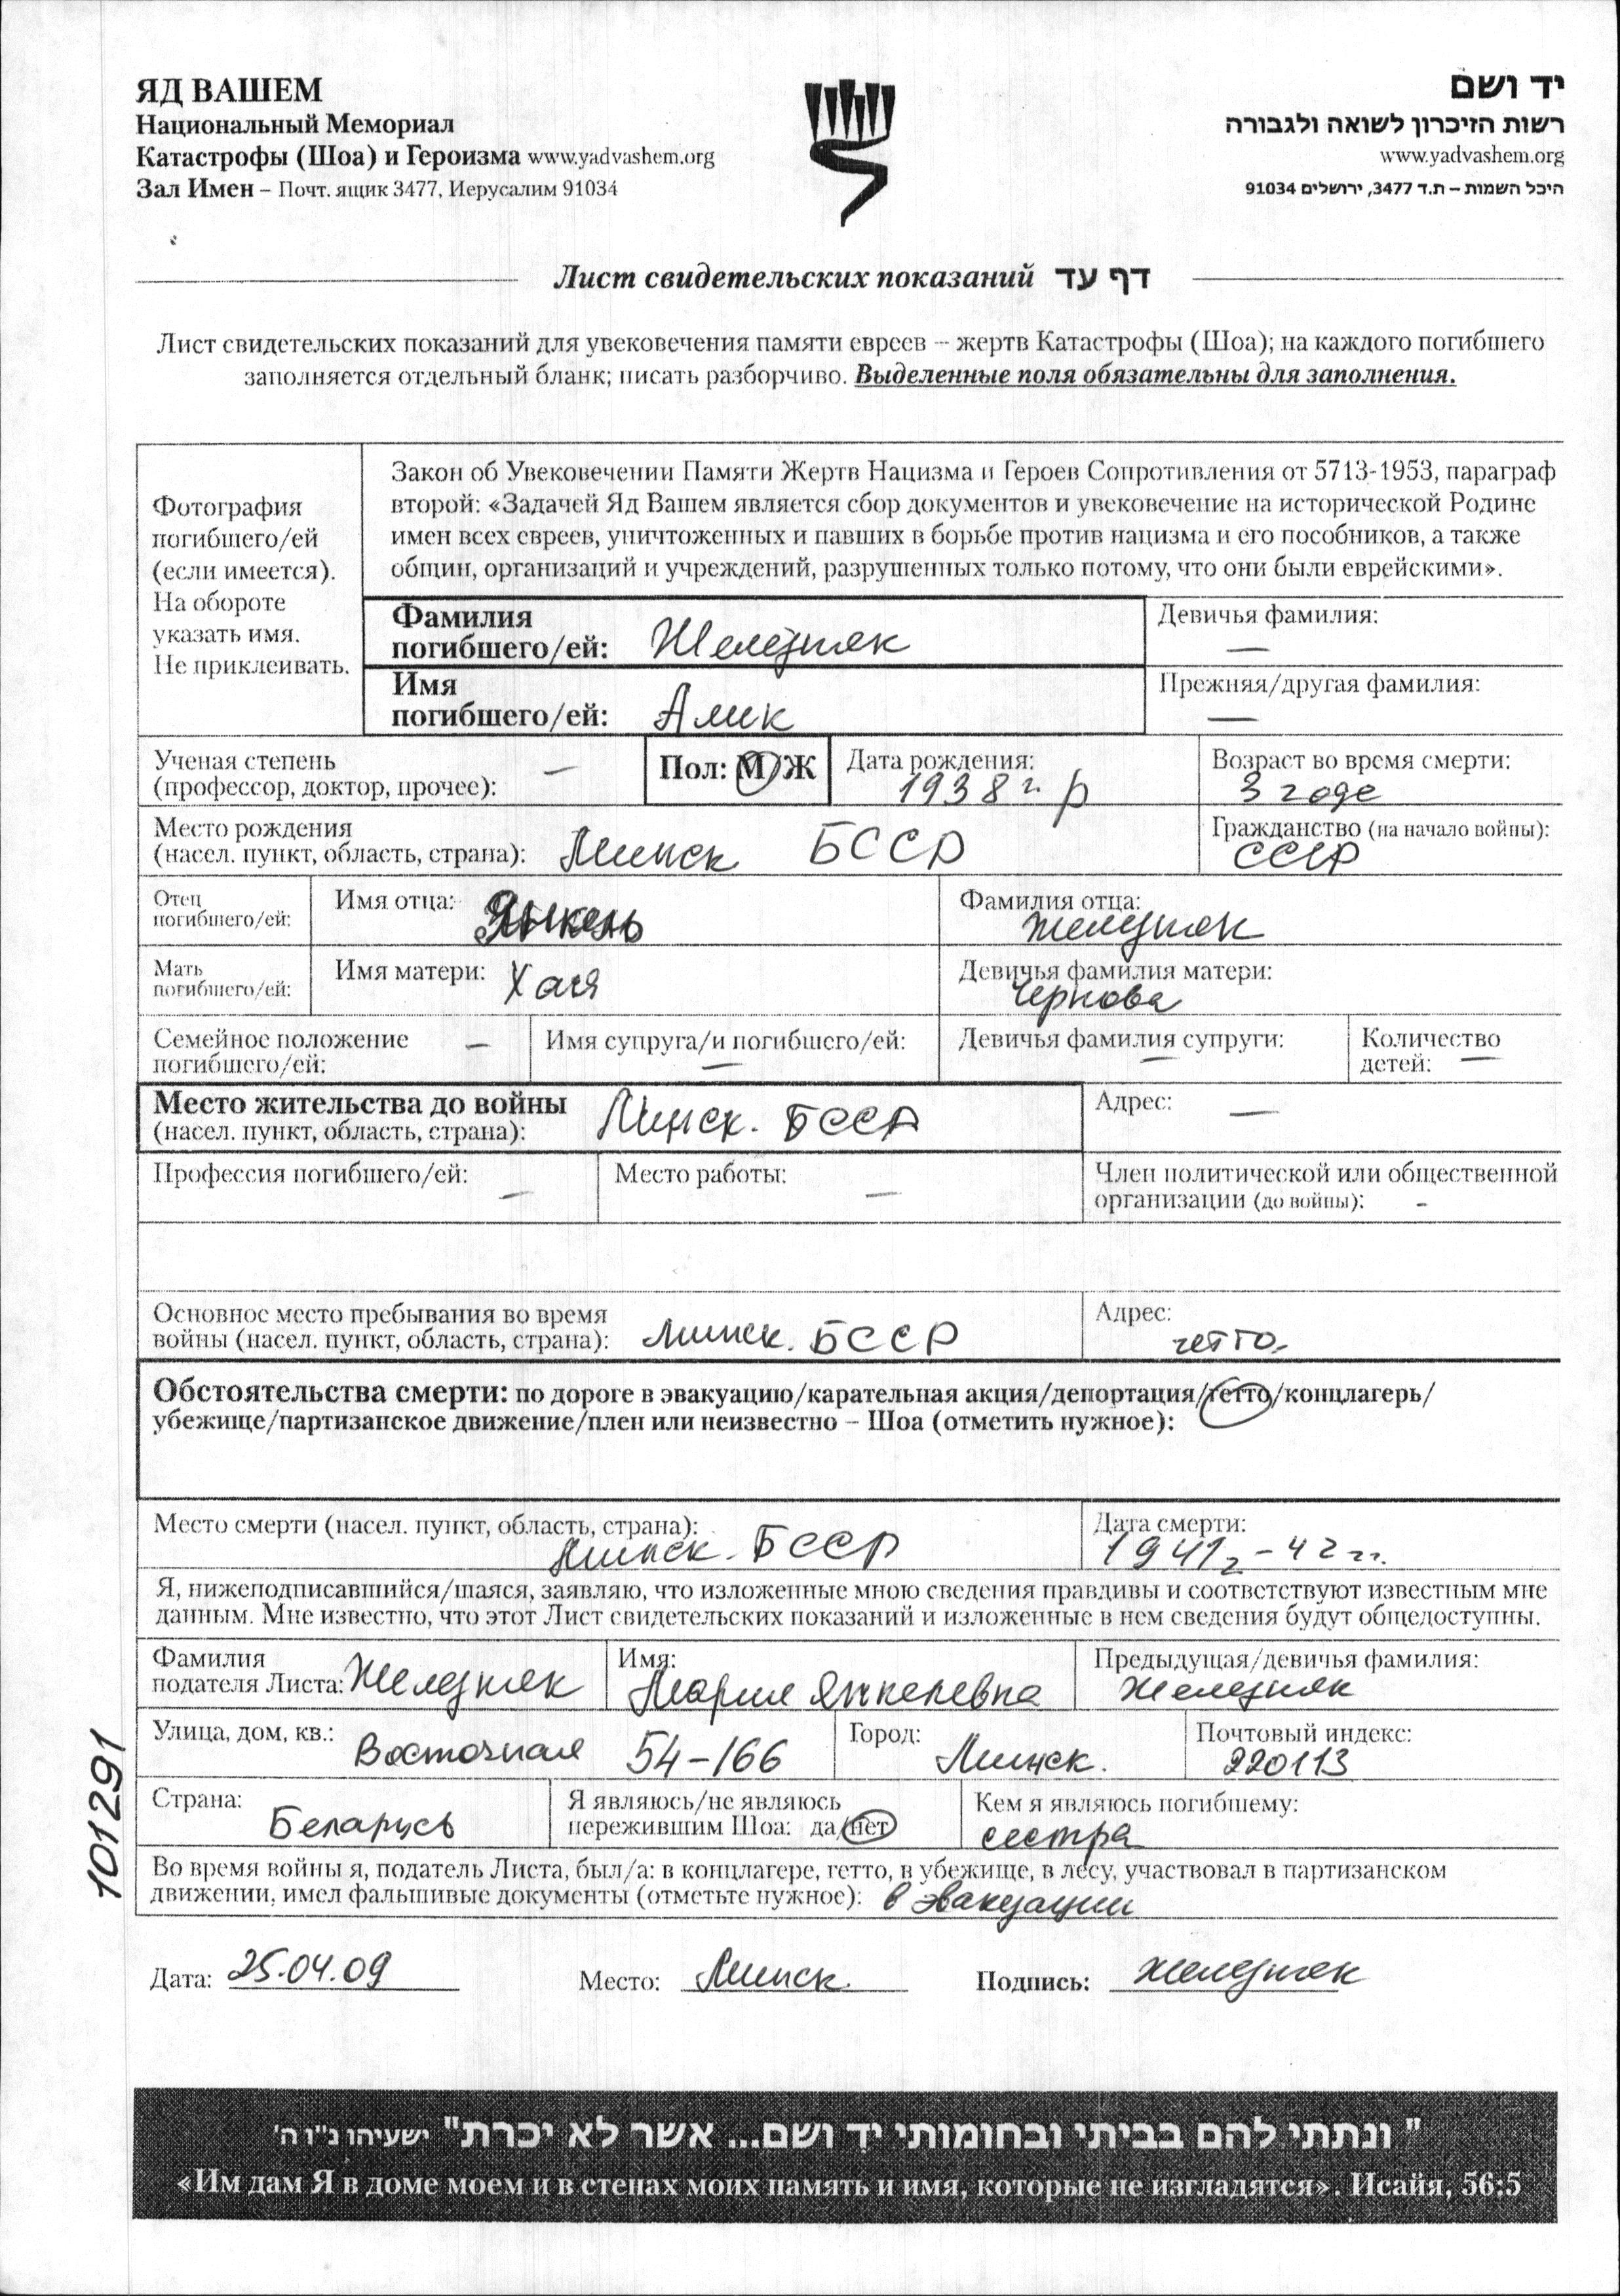 ЯД ВАШЕМ
Национальный Мемориал
Катастрофы (Шоа) и Героизма www.yadvashem.org
Зал Имен – Почт. ящик 3477, Иерусалим 91034
יד ושם
רשות הזיכרון לשואה ולגבורה
www.yadvashem.org
היכל השמות – ת.ד 3477, ירושלים 91034
Лист свидетельских показаний דף עד
Лист свидетельских показаний для увековечения памяти евреев – жертв Катастрофы (Шоа); на каждого погибшего
заполняется отдельный бланк; писать разборчиво. Выделенные поля обязательны для заполнения.
Фотография
погибшего/ей
(если имеется).
На обороте
указать имя.
Не приклеивать.
Закон об Увековечении Памяти Жертв Нацизма и Героев Сопротивления от 5713-1953, параграф
второй: «Задачей Яд Вашем является сбор документов и увековечение на исторической Родине
имен всех евреев, уничтоженных и павших в борьбе против нацизма и его пособников, а также
общин, организаций и учреждений, разрушенных только потому, что они были еврейскими».
Фамилия
погибшего/ей: Железняк
Девичья фамилия:
—
Имя
погибшего/ей: Алик
Прежняя/другая фамилия:
—
Ученая степень
(профессор, доктор, прочее): —
Пол: М/Ж
Дата рождения:
1938 г. р
Возраст во время смерти:
3 года
Место рождения
(насел. пункт, область, страна): Минск БССР
Гражданство (на начало войны):
СССР
Отец
погибшего/ей:
Имя отца: Янкель
Фамилия отца:
Железняк
Мать
погибшего/ей:
Имя матери: Хася
Девичья фамилия матери:
Чернова
Семейное положение
погибшего/ей: —
Имя супруга/и погибшего/ей:
—
Девичья фамилия супруги:
—
Количество
детей: —
Место жительства до войны
(насел. пункт, область, страна): Минск. БССР
Адрес: —
Профессия погибшего/ей: —
Место работы: —
Член политической или общественной
организации (до войны): -
Основное место пребывания во время
войны (насел. пункт, область, страна): Минск. БССР
Адрес:
гетто.
Обстоятельства смерти: по дороге в эвакуацию/карательная акция/депортация/гетто/концлагерь/
убежище/партизанское движение/плен или неизвестно – Шоа (отметить нужное):
Место смерти (насел. пункт, область, страна):
Минск. БССР
Дата смерти:
1941г-42 гг.
Я, нижеподписавшийся/шаяся, заявляю, что изложенные мною сведения правдивы и соответствуют известным мне
данным. Мне известно, что этот Лист свидетельских показаний и изложенные в нем сведения будут общедоступны.
Фамилия
подателя Листа: Железняк
Имя:
Мария Янкелевна
Предыдущая/девичья фамилия:
Железняк
Улица, дом, кв.: Восточная 54-166
Город:
Минск.
Почтовый индекс:
220113
Страна:
Беларусь
Я являюсь/не являюсь
пережившим Шоа: да/нет
Кем я являюсь погибшему:
сестра
Во время войны я, податель Листа, был/а: в концлагере, гетто, в убежище, в лесу, участвовал в партизанском
движении, имел фальшивые документы (отметьте нужное): в эвакуации
Дата: 25.04.09
Место: Минск.
Подпись: Железняк
101291
" ונתתי להם בביתי ובחומותי יד ושם... אשר לא יכרת" ישעיהו נ"ו ה'
«Им дам Я в доме моем и в стенах моих память и имя, которые не изгладятся». Исайя, 56:5